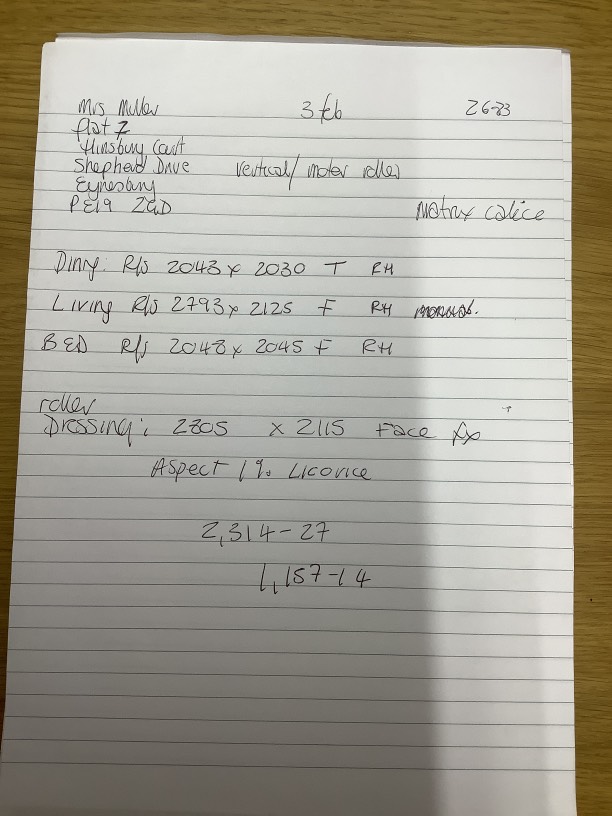 Mrs Miller 3 feb 26-23
flat 7
Hinsbury Court
Shepherd Drive vertical/ motor roller
Eynesbury
PE19 2GD Matrix calice
Dining: R/s 2043 x 2030 T RH
Living R/s 2793 x 2125 F RH manual.
BED R/s 2048 x 2045 F RH
roller
Dressing: 2205 x 2115 Face fix
Aspect 1% Licorice
2,314-27
1,157-14